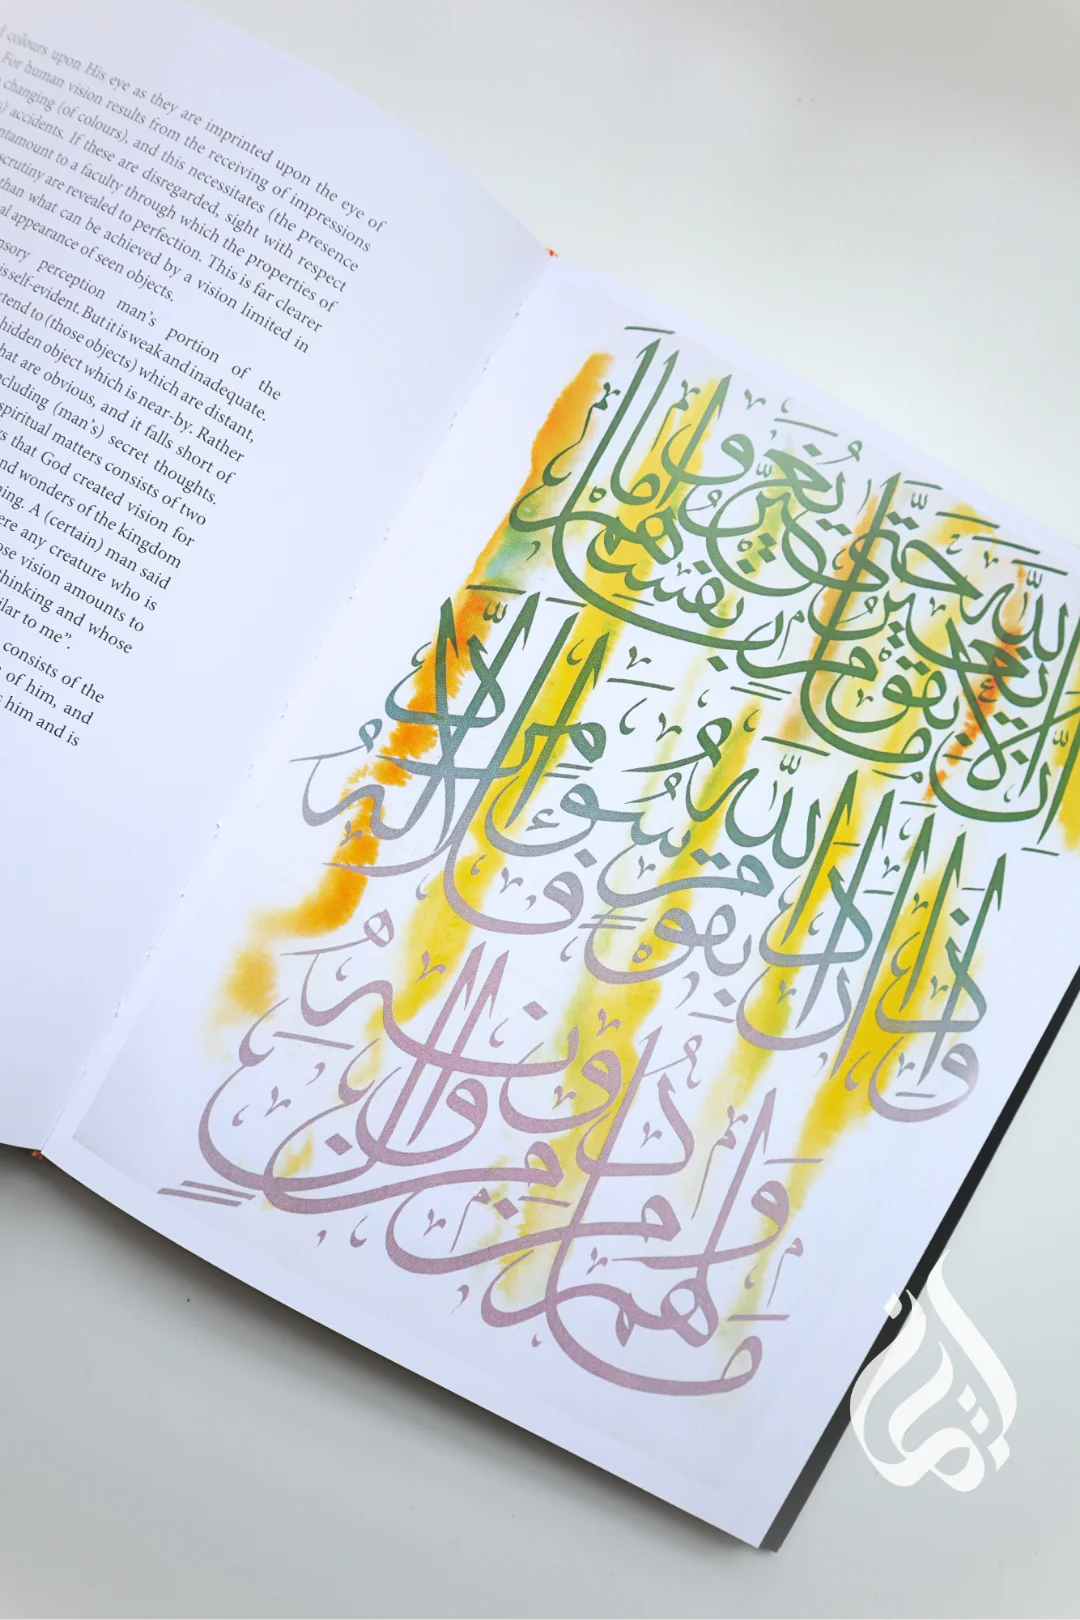 colours upon His eye as they are imprinted upon the eye of
For human vision results from the receiving of impressions
changing (of colours), and this necessitates (the presence
accidents. If these are disregarded, sight with respect
to a faculty through which the properties of
scrutiny are revealed to perfection. This is far clearer
than what can be achieved by a vision limited in
appearance of seen objects.
perception man's portion of the
is self-evident. But it is weak and inadequate.
to (those objects) which are distant,
hidden object which is near-by. Rather
that are obvious, and it falls short of
(man's) secret thoughts.
spiritual matters consists of two
that God created vision for
and wonders of the kingdom
A (certain) man said
any creature who is
vision amounts to
thinking and whose
to me”.
consists of the
of him, and
him and is
إن الله لا يغير ما بقوم حتى يغيروا ما بأنفسهم
وإذا أراد الله بقوم سوءا فلا مرد له
وما لهم من دونه من وال